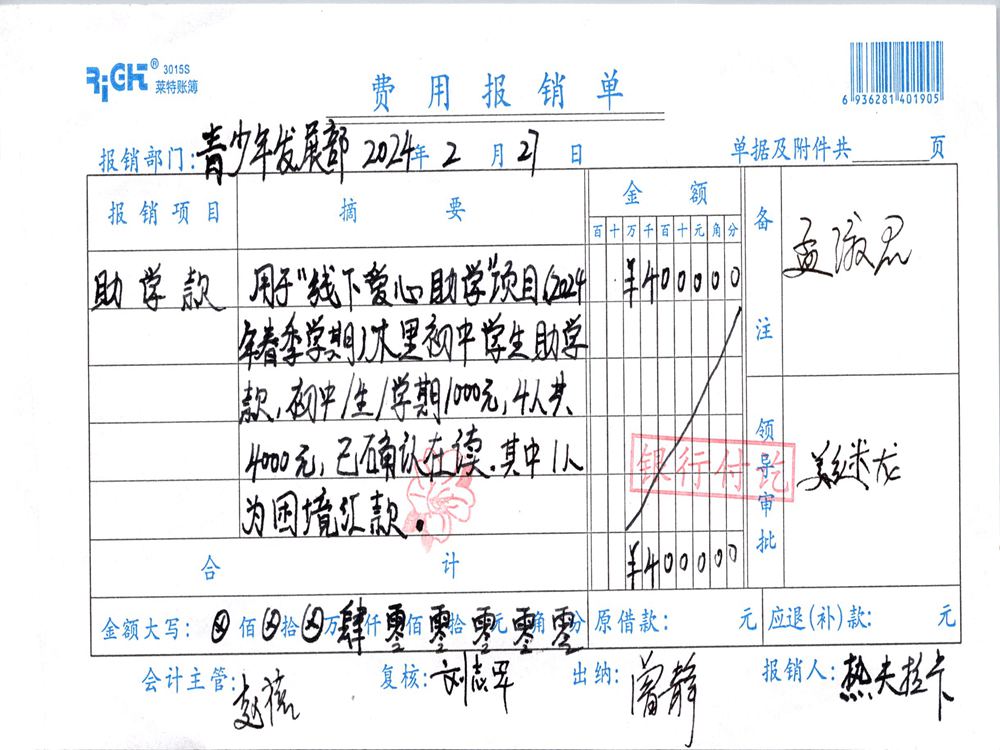 RiGHT® 3015S
莱特账簿
费用报销单
6 936281 401905
报销部门:青少年发展部 2024年2月27日 单据及附件共 页
报销项目 摘要 金额 备注
百十万千百十元角分
助学款 用于“线下爱心助学”项目(2024 ¥400000
年春季学期)木里初中学生助学
款,初中/生/学期1000元,4人共
4000元,已确认在读.其中1人
为困境汇款.
银行付讫
领导审批
合计 ¥400000
金额大写: ⊗佰⊗拾⊗万肆仟零佰零拾零元零角零分 原借款: 元 应退(补)款: 元
会计主管: 复核:刘志军 出纳:曾静 报销人:热夫拉卡